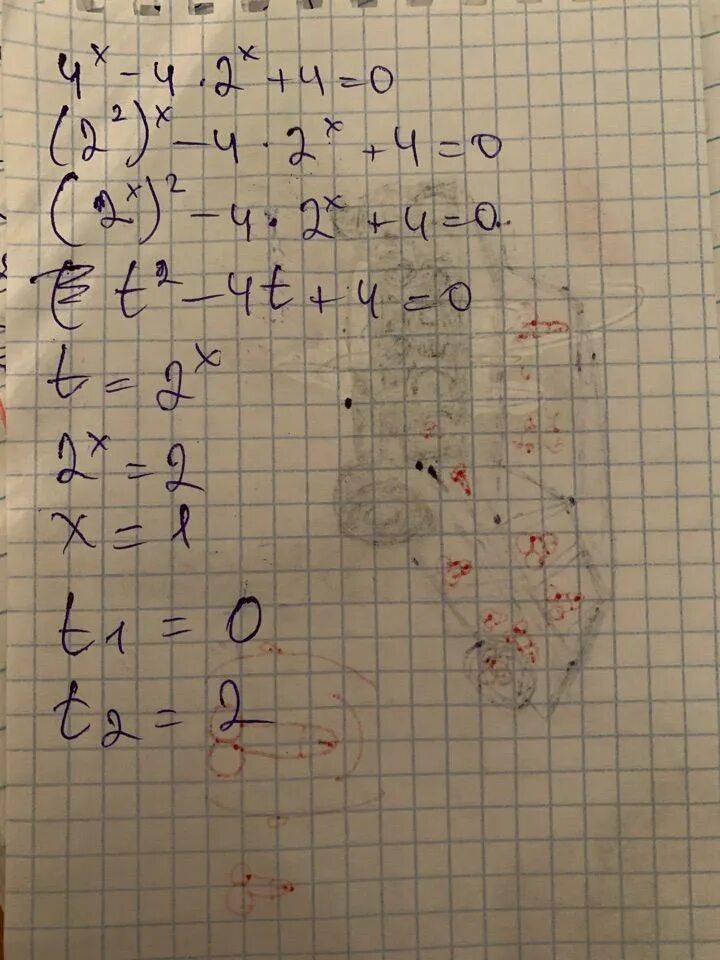 4^x - 4 · 2^x + 4 = 0
(2^2)^x - 4 · 2^x + 4 = 0
(2^x)^2 - 4 · 2^x + 4 = 0
t^2 - 4t + 4 = 0
t = 2^x
2^x = 2
x = 1
t1 = 0
t2 = 2